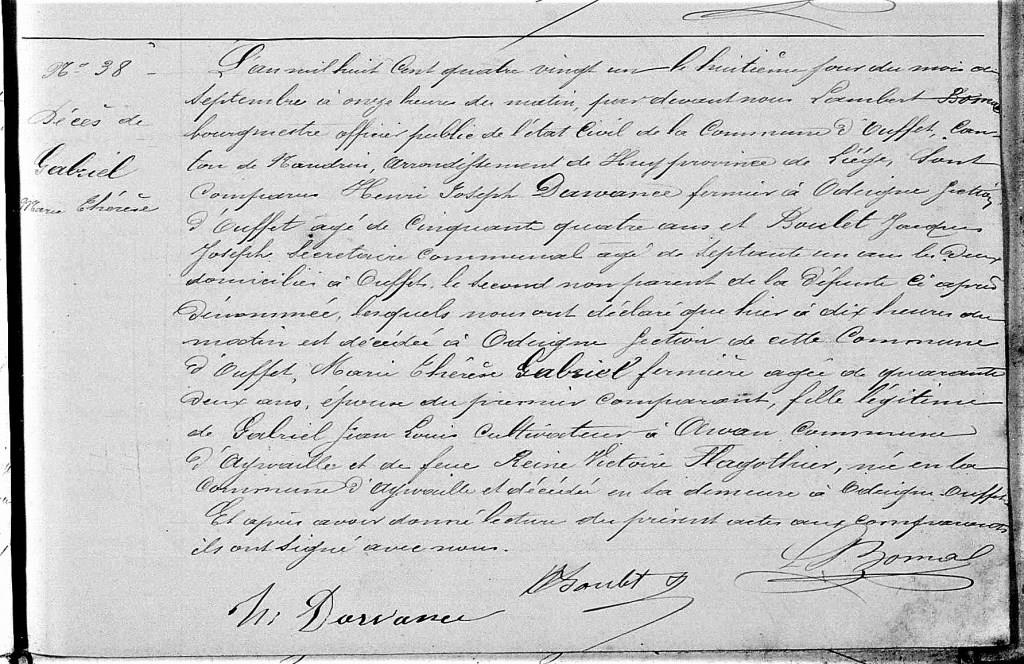 N° 38
Décès de
Gabriel
Marie Thérèse
L'an mil huit Cent quatre vingt un le huitième jour du mois de
septembre à onze heures du matin, par devant nous Lambert Bomal
bourgmestre officier public de l'état Civil de la Commune d'Ouffet, Can-
ton de Nandrin, arrondissement de Huy province de Liége, Sont
Comparus Henri Joseph Dawance fermier à Odeigne Section
d'Ouffet agé de Cinquante quatre ans et Boulet Jacques
Joseph, Secrétaire Communal agé de Septante un ans les Deux
domiciliés à Ouffet, le second non parent de la défunte Ci après
Dénommée, lesquels nous ont déclaré que hier à dix heures du
matin est décédée à Odeigne Section de cette Commune
d'Ouffet, Marie Thérèse Gabriel fermière agée de quarante
deux ans, épouse du premier Comparant, fille légitime
de Gabriel Jean Louis Cultivateur à Awan Commune
d'Aywaille et de feue Reine Victoire Hagothier, née en la
Commune d'Aywaille et décédée en sa demeure à Odeigne Ouffet
Et après avoir donné lecture du présent actes aux comparants
ils ont signé avec nous.
L Bomal
Boulet
H; Dawance